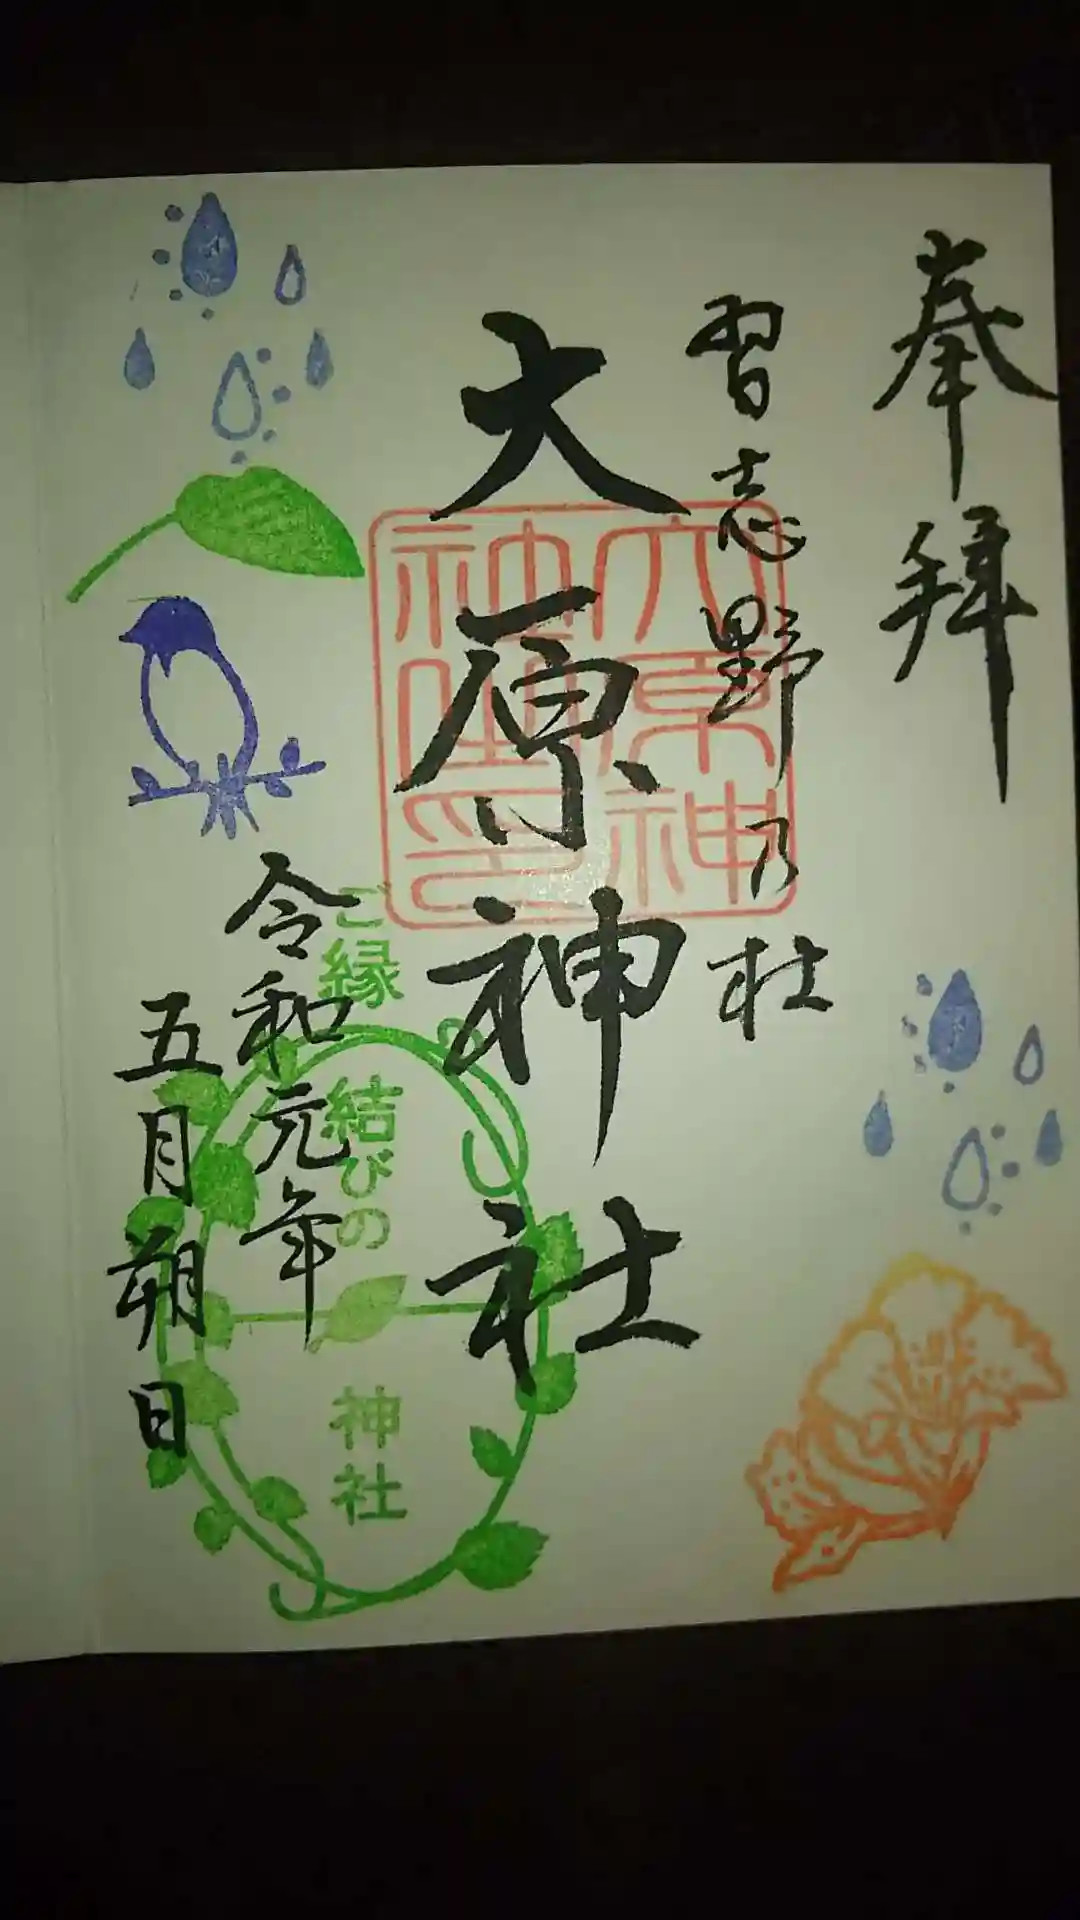 奉拝
習志野乃杜
大原神社
大原神
社之印
令和元年
五月朔日
ご縁結びの神社